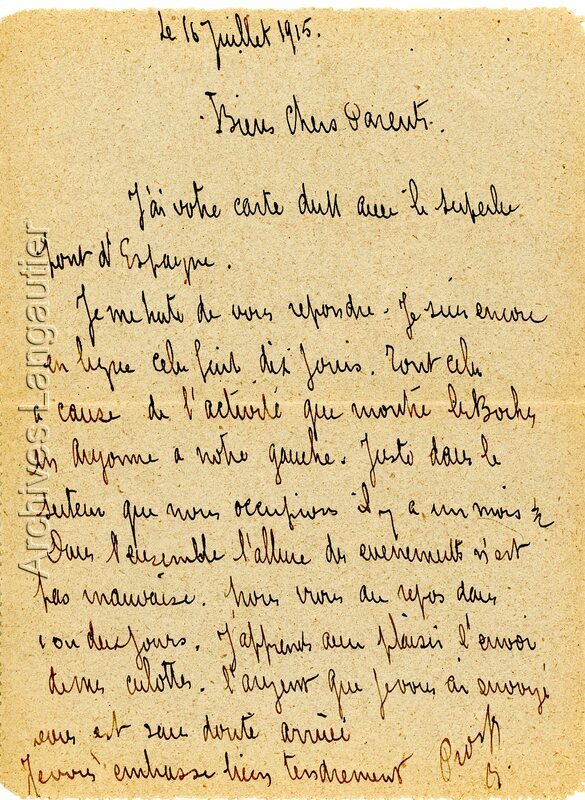 Le 16 Juillet 1915.
Biens Chers Parents.
J'ai votre carte du 11 avec le superbe
pont d'Espagne.
Je me hate de vous repondre. Je suis encore
en ligne cela fait dix jours. Tout cela
a cause de l'activité que montre les Boches
en Argonne a notre gauche. Juste dans le
secteur que nous occupions il y a un mois ½
Dans l'ensemble l'allure des evenements n'est
pas mauvaise. Nous irons au repos dans
1 ou deux jours. J'apprends avec plaisir l'envoi
de mes culottes. L'argent que je vous ai envoyé
vous est sans doute arrivé
Je vous embrasse bien tendrement
Archives Langautier